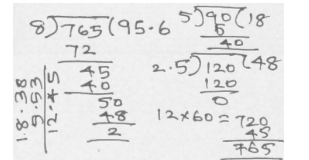 8)765(95.6
72
45
40
50
48
2
5)90(18
5
40
2.5)120(48
120
0
12×60=720
45
765
1.8.38
9.53
12.45